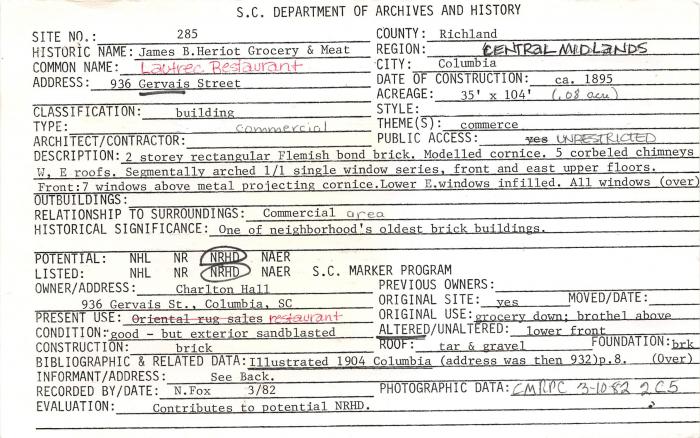 S.C. DEPARTMENT OF ARCHIVES AND HISTORY
SITE NO.: 285
HISTORIC NAME: James B.Heriot Grocery & Meat
COMMON NAME: Lautrec Restaurant
ADDRESS: 936 Gervais Street
COUNTY: Richland
REGION: CENTRAL MIDLANDS
CITY: Columbia
DATE OF CONSTRUCTION: ca. 1895
ACREAGE: 35' x 104' (.08 acre)
CLASSIFICATION: building
TYPE: commercial
ARCHITECT/CONTRACTOR:
STYLE:
THEME(S): commerce
PUBLIC ACCESS: yes UNRESTRICTED
DESCRIPTION: 2 storey rectangular Flemish bond brick. Modelled cornice. 5 corbeled chimneys
W, E roofs. Segmentally arched 1/1 single window series, front and east upper floors.
Front:7 windows above metal projecting cornice.Lower E.windows infilled. All windows (over)
OUTBUILDINGS:
RELATIONSHIP TO SURROUNDINGS: Commercial area
HISTORICAL SIGNIFICANCE: One of neighborhood's oldest brick buildings.
POTENTIAL: NHL NR NRHD NAER
LISTED: NHL NR NRHD NAER S.C. MARKER PROGRAM
OWNER/ADDRESS: Charlton Hall
936 Gervais St., Columbia, SC
PRESENT USE: Oriental rug sales restaurant
CONDITION: good - but exterior sandblasted
CONSTRUCTION: brick
PREVIOUS OWNERS:
ORIGINAL SITE: yes MOVED/DATE:
ORIGINAL USE: grocery down; brothel above
ALTERED/UNALTERED: lower front
ROOF: tar & gravel FOUNDATION: brk
BIBLIOGRAPHIC & RELATED DATA: Illustrated 1904 Columbia (address was then 932)p.8. (Over)
INFORMANT/ADDRESS: See Back.
RECORDED BY/DATE: N.Fox 3/82
PHOTOGRAPHIC DATA: CMRPC 3-1082 2C5
EVALUATION: Contributes to potential NRHD.